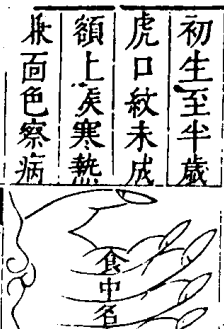 初生至半歲
虎口紋未成
額上候寒熱
脈面色察病
食中名